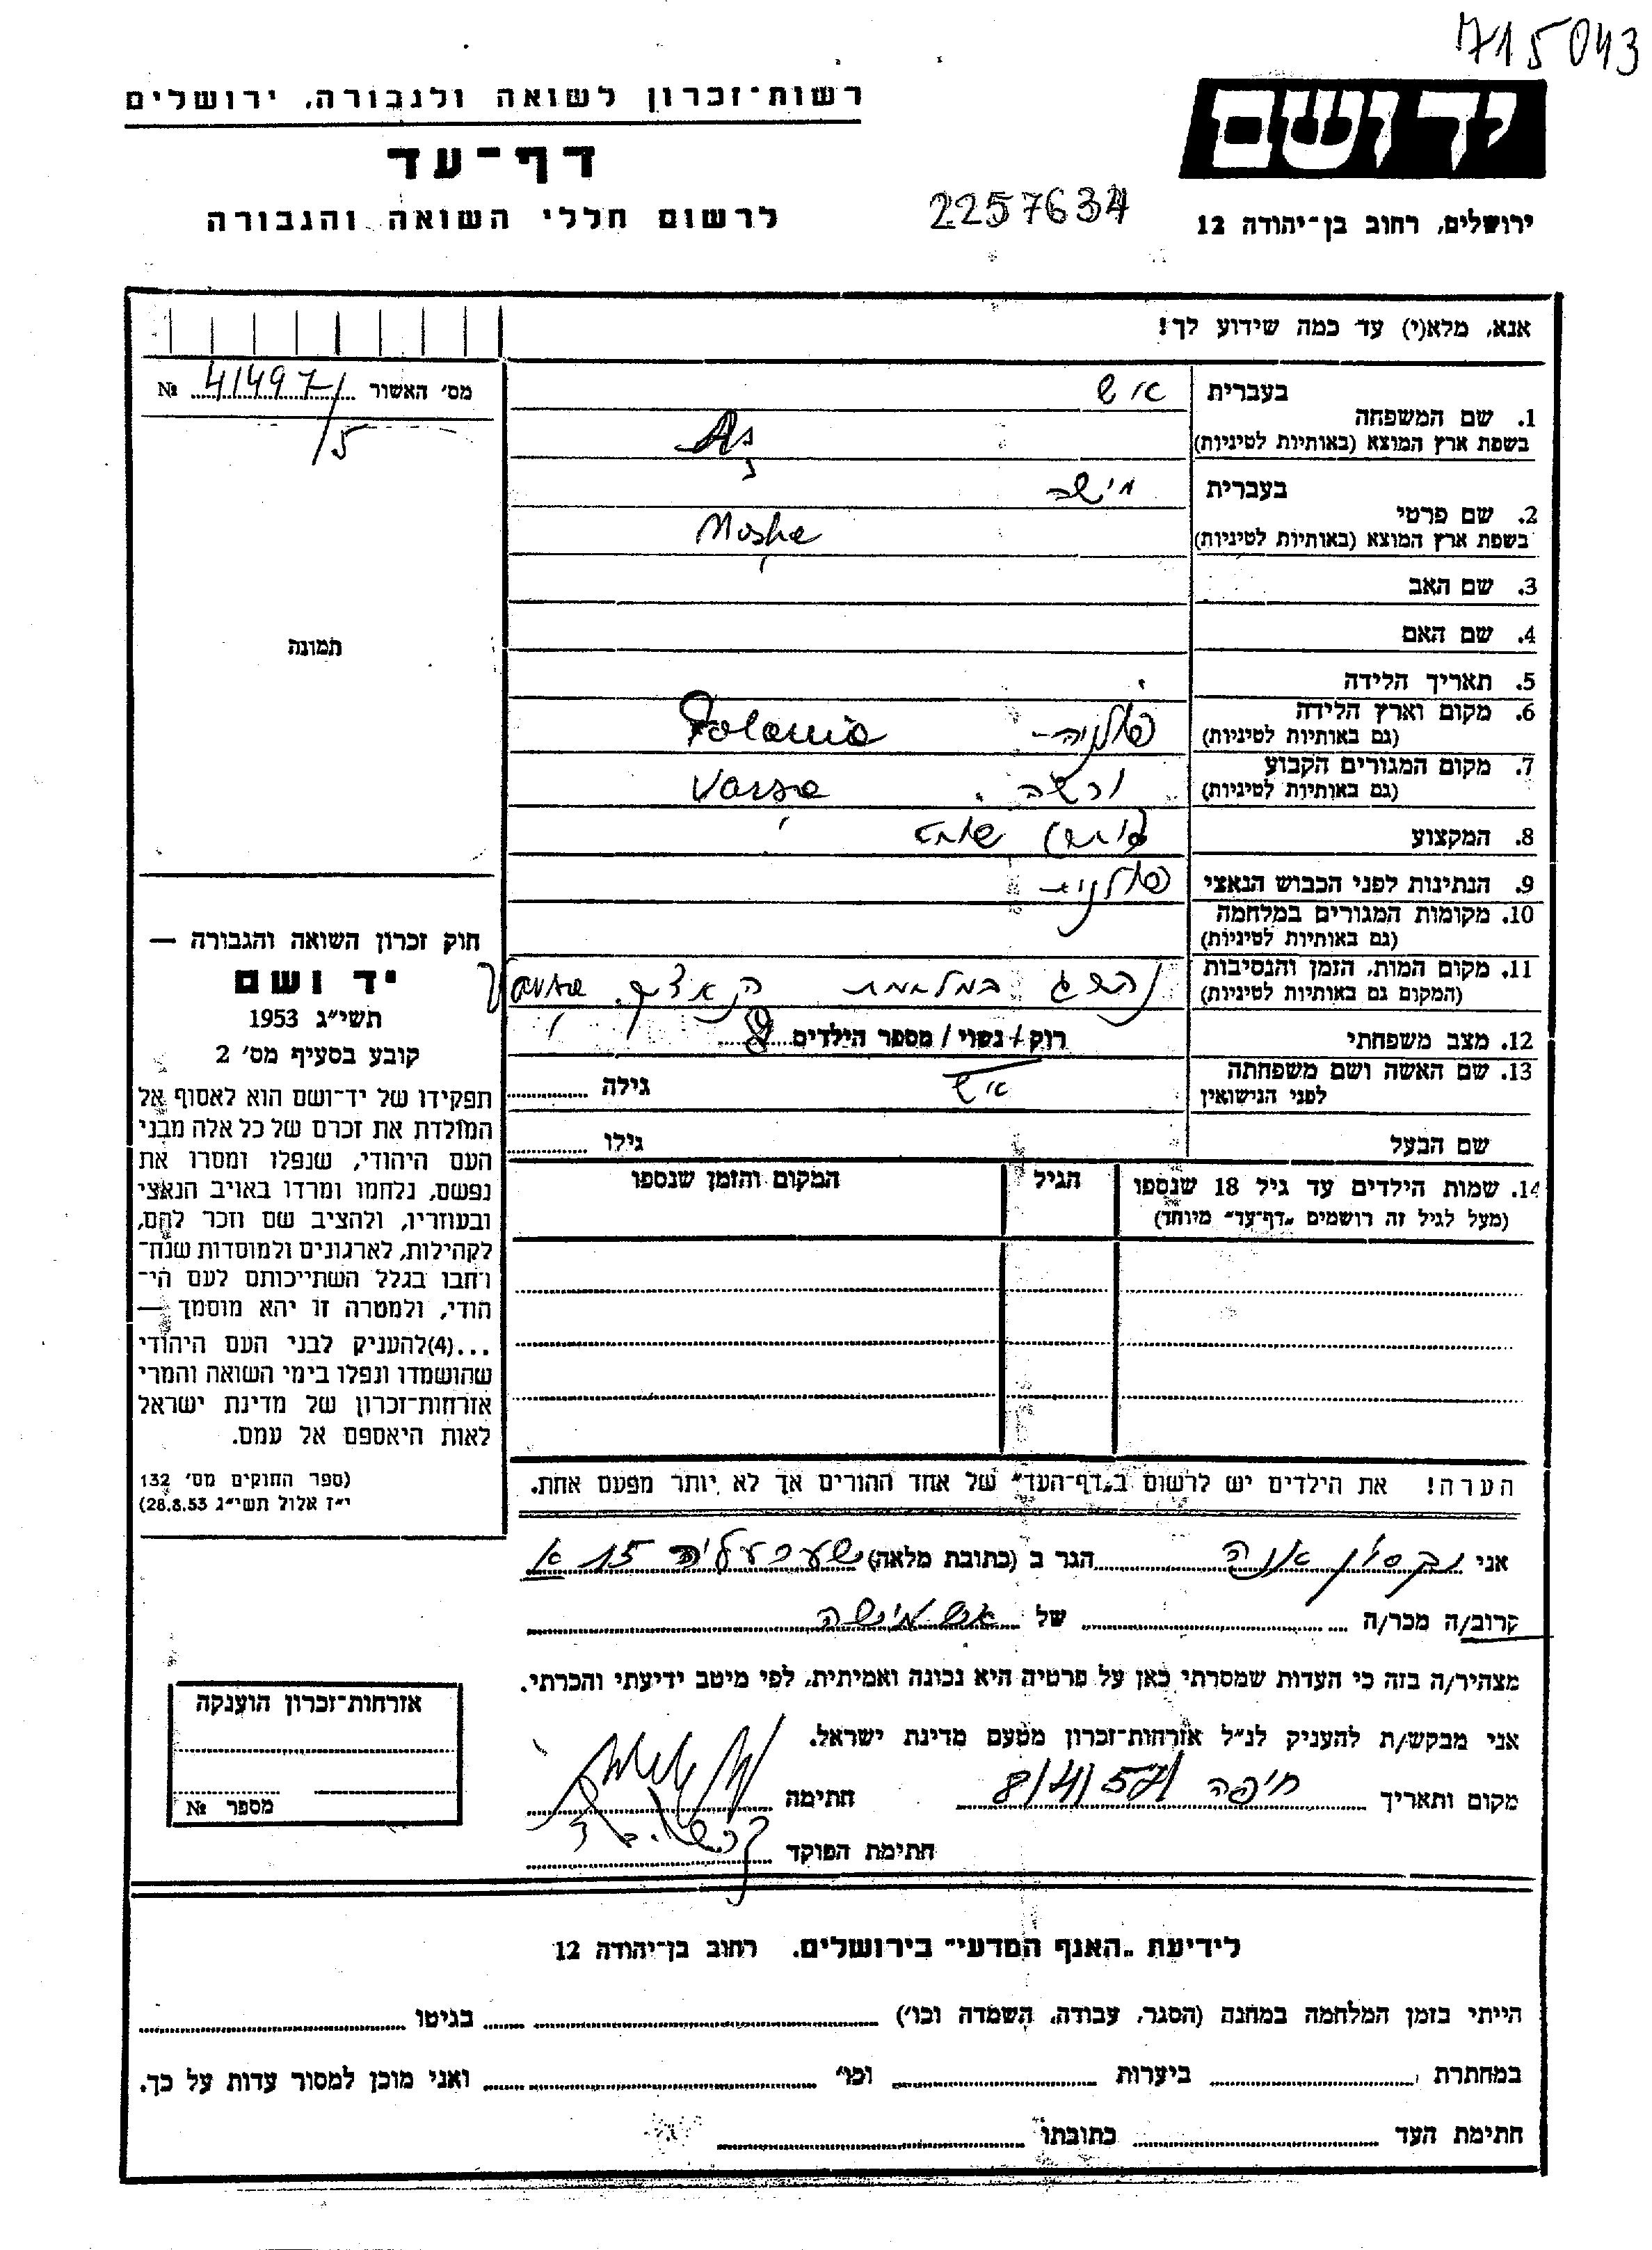 715043
רשות־זכרון לשואה ולגבורה, ירושלים
יד ושם
דף־עד
2257634
לרשום חללי השואה והגבורה
ירושלים, רחוב בן־יהודה 12
אנא, מלא(י) עד כמה שידוע לך!
מס׳ האשור 41497/5 №
בעברית איש
1. שם המשפחה
בשפת ארץ המוצא (באותיות לטיניות)
בעברית מישה
2. שם פרטי
בשפת ארץ המוצא (באותיות לטיניות) Moshe
3. שם האב
4. שם האם
תמונה
5. תאריך הלידה
6. מקום וארץ הלידה
(גם באותיות לטיניות) פולניה Polania
7. מקום המגורים הקבוע
(גם באותיות לטיניות) ורשה Varsha
8. המקצוע
9. הנתינות לפני הכבוש הנאצי פולנית
10. מקומות המגורים במלחמה
(גם באותיות לטיניות)
11. מקום המות, הזמן והנסיבות
(המקום גם באותיות לטיניות) נהרג במלחמת הנאצים. Varsha
12. מצב משפחתי רוק / נשוי / מספר הילדים
13. שם האשה ושם משפחתה
לפני הנישואין איש גילה
שם הבעל גילו
14. שמות הילדים עד גיל 18 שנספו הגיל המקום והזמן שנספו
(מעל לגיל זה רושמים „דף־עד״ מיוחד)
הערה! את הילדים יש לרשום ב„דף־העד״ של אחד ההורים אך לא יותר מפעם אחת.
חוק זכרון השואה והגבורה —
יד ושם
תשי״ג 1953
קובע בסעיף מס׳ 2
תפקידו של יד־ושם הוא לאסוף אל
המולדת את זכרם של כל אלה מבני
העם היהודי, שנפלו ומסרו את
נפשם, נלחמו ומרדו באויב הנאצי
ובעוזריו, ולהציב שם וזכר להם,
לקהילות, לארגונים ולמוסדות שנח־
רבו בגלל השתייכותם לעם הי־
הודי, ולמטרה זו יהא מוסמך —
...(4)להעניק לבני העם היהודי
שהושמדו ונפלו בימי השואה והמרי
אזרחות־זכרון של מדינת ישראל
לאות היאספם אל עמם.
(ספר החוקים מס׳ 132
י״ז אלול תשי״ג 28.8.53)
אני אנה הגר ב (כתובת מלאה) שער עליה 15 א
קרוב/ה מכר/ה של איש מישה
מצהיר/ה בזה כי העדות שמסרתי כאן על פרטיה היא נכונה ואמיתית, לפי מיטב ידיעתי והכרתי.
אני מבקש/ת להעניק לנ״ל אזרחות־זכרון מטעם מדינת ישראל.
מקום ותאריך חיפה 8/4/57 חתימה
חתימת הפוקד
אזרחות־זכרון הוענקה
מספר №
לידיעת „האגף המדעי״ בירושלים, רחוב בן־יהודה 12
הייתי בזמן המלחמה במחנה (הסגר, עבודה, השמדה וכו׳) בגיטו
במחתרת ביערות וכו׳ ואני מוכן למסור עדות על כך.
חתימת העד כתובתו